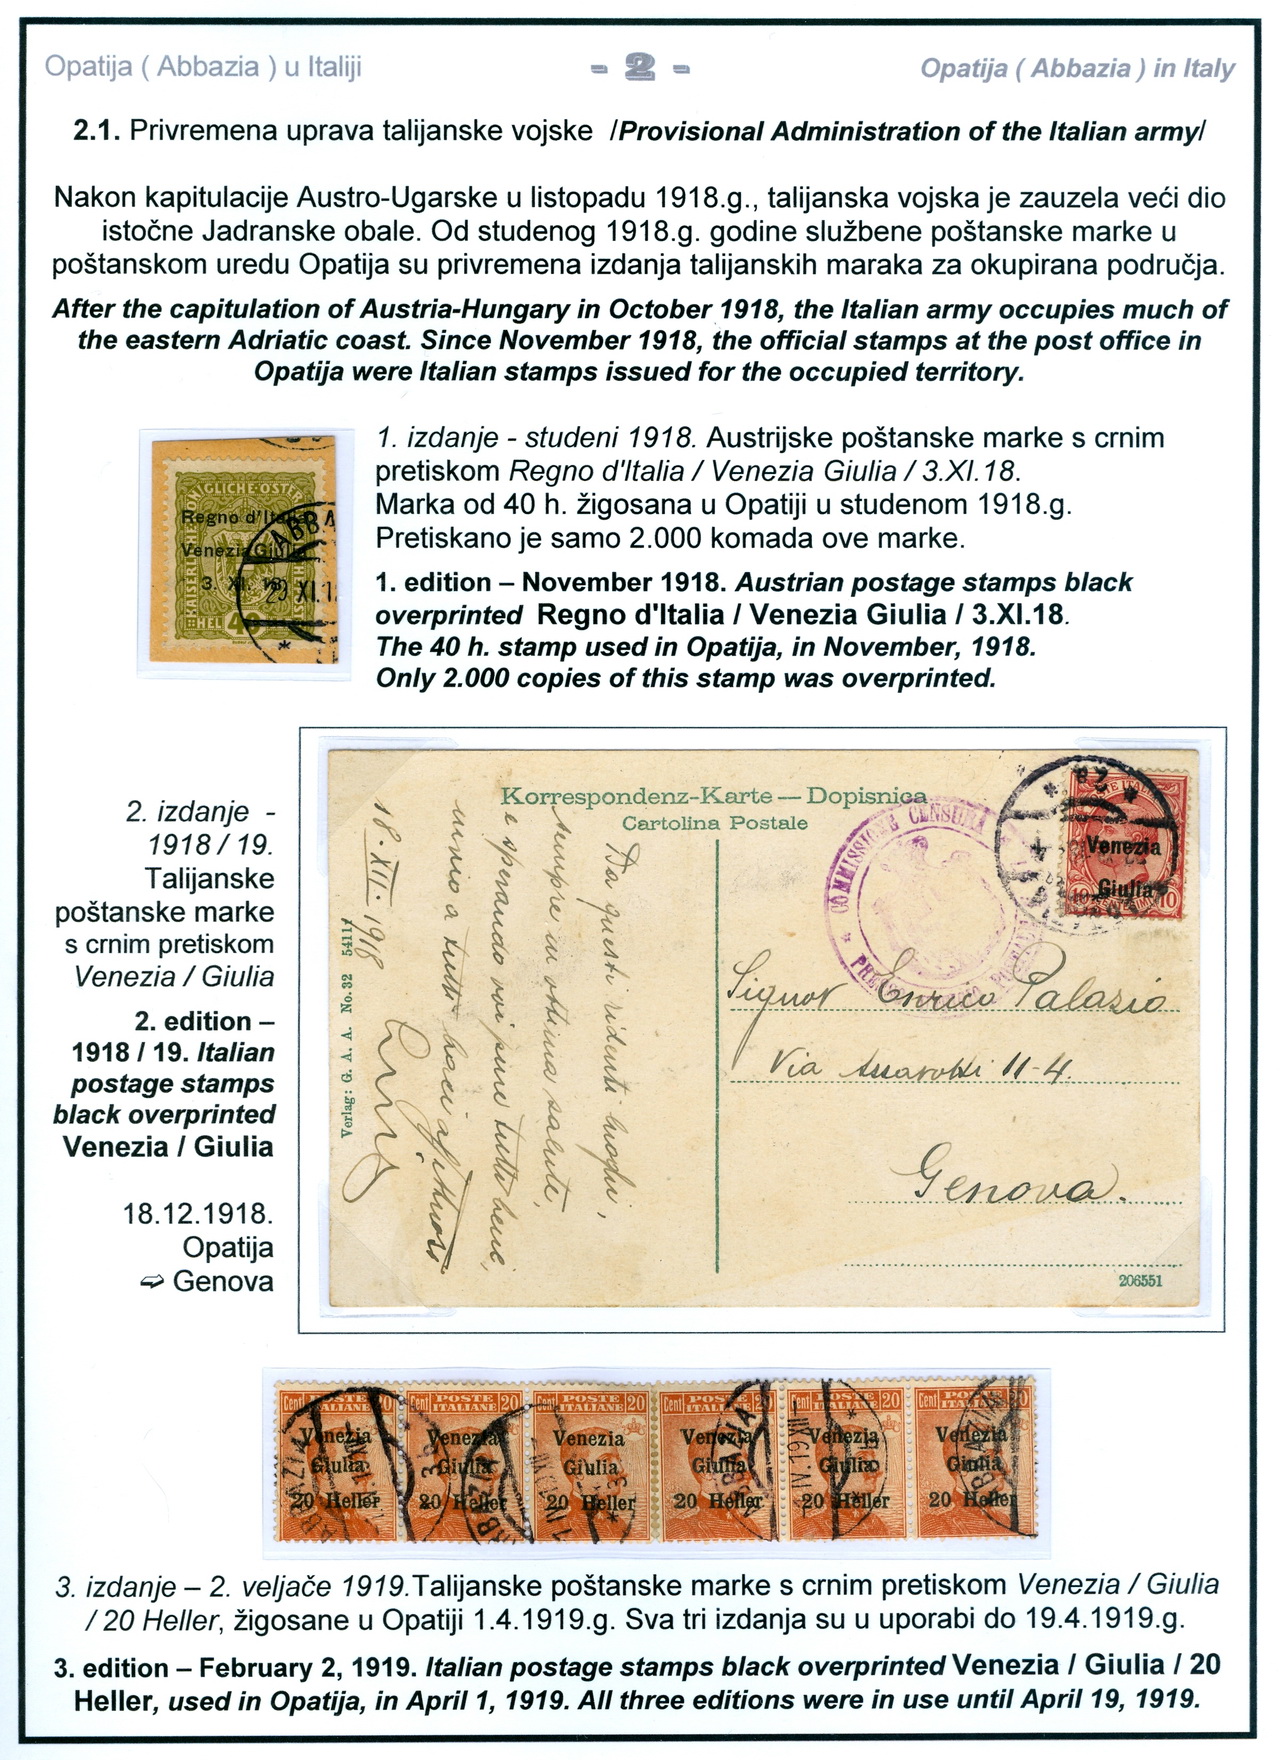 Opatija ( Abbazia ) u Italiji
- 2 -
Opatija ( Abbazia ) in Italy
2.1. Privremena uprava talijanske vojske /Provisional Administration of the Italian army/
Nakon kapitulacije Austro-Ugarske u listopadu 1918.g., talijanska vojska je zauzela veći dio
istočne Jadranske obale. Od studenog 1918.g. godine službene poštanske marke u
poštanskom uredu Opatija su privremena izdanja talijanskih maraka za okupirana područja.
After the capitulation of Austria-Hungary in October 1918, the Italian army occupies much of
the eastern Adriatic coast. Since November 1918, the official stamps at the post office in
Opatija were Italian stamps issued for the occupied territory.
Regno d'Italia
Venezia Giulia
3. XI. 18.
ABBA
29 XI.1
HEL 40
1. izdanje - studeni 1918. Austrijske poštanske marke s crnim
pretiskom Regno d'Italia / Venezia Giulia / 3.XI.18.
Marka od 40 h. žigosana u Opatiji u studenom 1918.g.
Pretiskano je samo 2.000 komada ove marke.
1. edition – November 1918. Austrian postage stamps black
overprinted Regno d'Italia / Venezia Giulia / 3.XI.18.
The 40 h. stamp used in Opatija, in November, 1918.
Only 2.000 copies of this stamp was overprinted.
2. izdanje -
1918 / 19.
Talijanske
poštanske marke
s crnim pretiskom
Venezia / Giulia
2. edition –
1918 / 19. Italian
postage stamps
black overprinted
Venezia / Giulia
18.12.1918.
Opatija
➫ Genova
Korrespondenz-Karte — Dopisnica
Cartolina Postale
COMMISSIONE CENSURA
Venezia
Giulia
10
18-XII-1918
Da questi ridenti luoghi,
sempre in ottima salute,
e sperando voi pure tutti bene,
invio a tutti baci affettuosi
Verlag: G. A. A. No. 32 54111
Signor Enrico Palazio
Via Assarotti 11-4.
Genova.
206551
Cent POSTE ITALIANE 20
Venezia
Giulia
20 Heller
Cent POSTE ITALIANE 20
Venezia
Giulia
20 Heller
Cent POSTE ITALIANE 20
Venezia
Giulia
20 Heller
Cent POSTE ITALIANE 20
Venezia
Giulia
20 Heller
Cent POSTE ITALIANE 20
Venezia
Giulia
20 Heller
Cent POSTE ITALIANE 20
Venezia
Giulia
20 Heller
ABBAZIA
3. izdanje – 2. veljače 1919.Talijanske poštanske marke s crnim pretiskom Venezia / Giulia
/ 20 Heller, žigosane u Opatiji 1.4.1919.g. Sva tri izdanja su u uporabi do 19.4.1919.g.
3. edition – February 2, 1919. Italian postage stamps black overprinted Venezia / Giulia / 20
Heller, used in Opatija, in April 1, 1919. All three editions were in use until April 19, 1919.